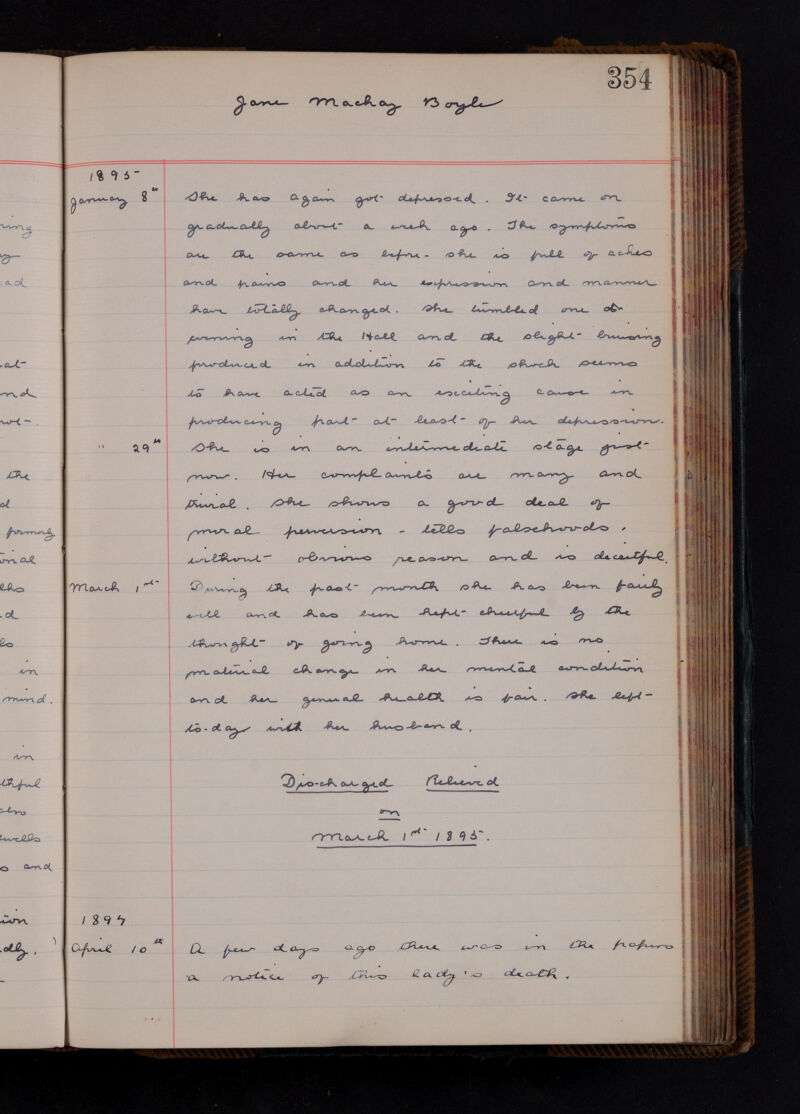 354
Jane Mackay Boyle
1895
January 8th She has again got depressed. It came on
gradually about a week ago. The symptoms
are the same as before - she is full of aches
and pains and her expression and manner
have totally changed. She tumbled one
evening in the Hall and the slight bruising
produced in addition to the shock seems
to have acted as an exciting cause in
producing part at least of her depression.
" 29th She is in an intermediate stage just
now. Her complaints are many and
trivial. She shows a good deal of
moral perversion - tells falsehoods,
without obvious reason and is deceitful.
March 1st During the past month she has been fairly
well and has been kept cheerful by the
thought of going home. There is no
material change in her mental condition
and her general health is fair. She left
to-day with her husband.
Discharged Relieved
on
March 1st 1895.
1897
April 10th A few days ago there was in the papers
a notice of this lady's death.